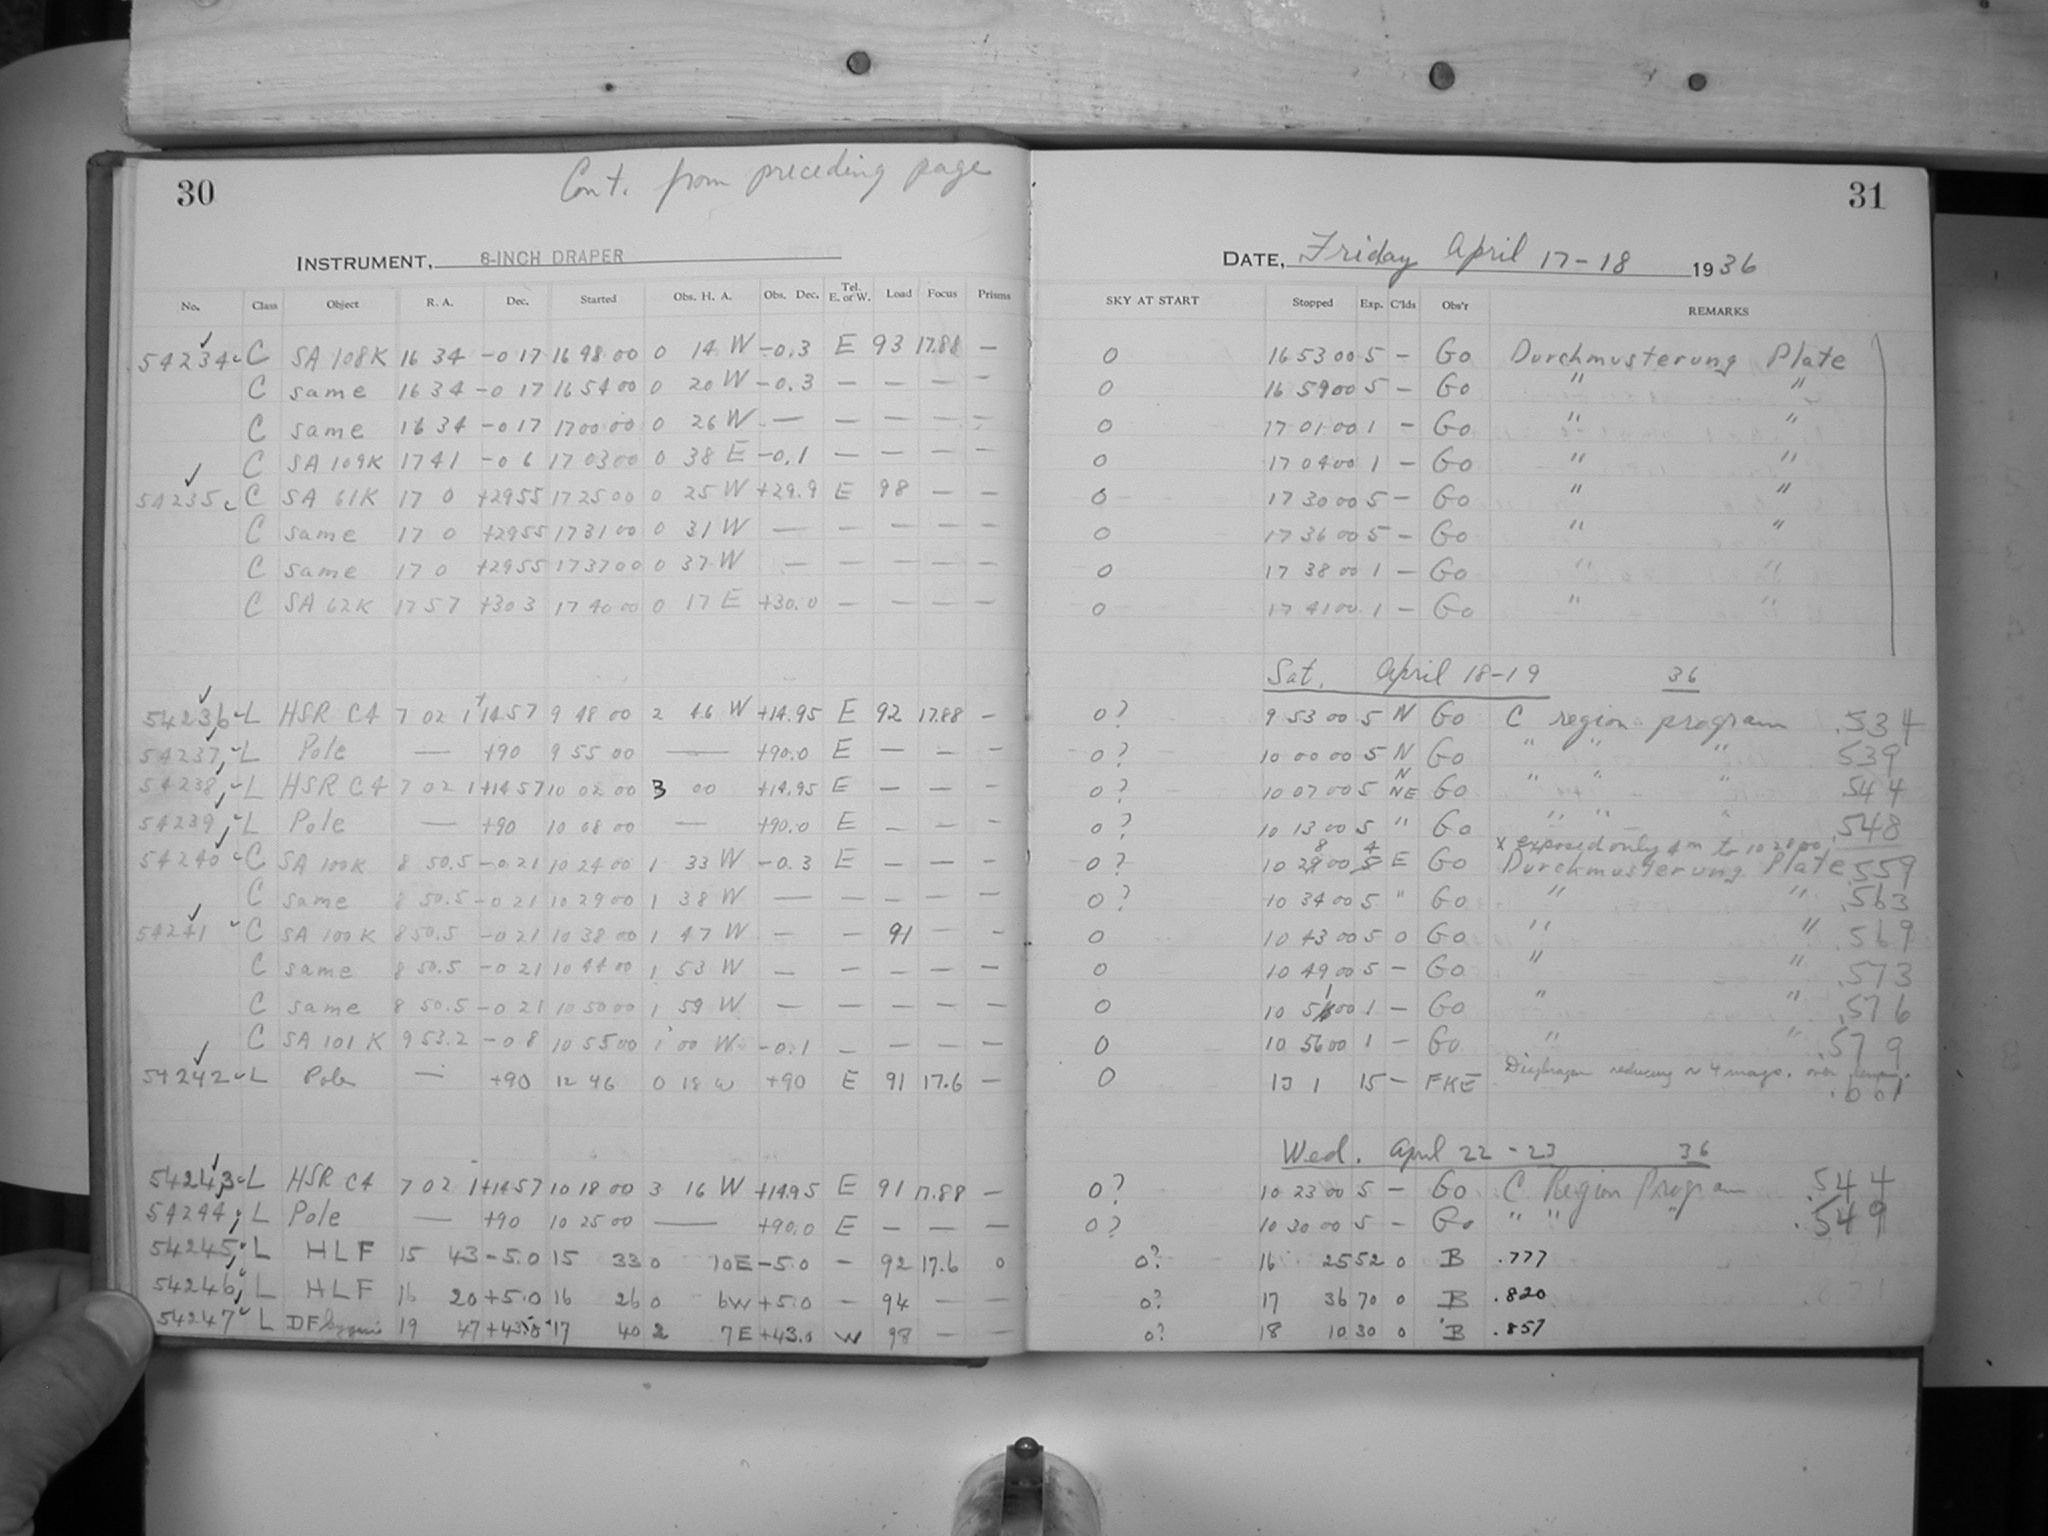 30
Cont. from preceding page
INSTRUMENT, 8-INCH DRAPER
No. Class Object R. A. Dec. Started Obs. H. A. Obs. Dec. Tel. E. or W. Load Focus Prisms
54234 C SA 108K 16 34 -0 17 16 48 00 0 14 W -0.3 E 93 17.88 —
C same 16 34 -0 17 16 54 00 0 20 W -0.3 — — — —
C same 16 34 -0 17 17 00 00 0 26 W — — — — —
C SA 109K 17 41 -0 6 17 03 00 0 38 E -0.1 — — — —
54235 C SA 61K 17 0 +29 55 17 25 00 0 25 W +29.9 E 98 — —
C same 17 0 +29 55 17 31 00 0 31 W — — — — —
C same 17 0 +29 55 17 37 00 0 37 W — — — — —
C SA 62K 17 57 +30 3 17 40 00 0 17 E +30.0 — — — —
54236 L HSR C4 7 02 1 +14 57 9 48 00 2 46 W +14.95 E 92 17.88 —
54237 L Pole — +90 9 55 00 — +90.0 E — — —
54238 L HSR C4 7 02 1 +14 57 10 02 00 3 00 +14.95 E — — —
54239 L Pole — +90 10 08 00 — +90.0 E — — —
54240 C SA 100K 8 50.5 -0 21 10 24 00 1 33 W -0.3 E — — —
C same 8 50.5 -0 21 10 29 00 1 38 W — — — — —
54241 C SA 100K 8 50.5 -0 21 10 38 00 1 47 W — — 91 — —
C same 8 50.5 -0 21 10 44 00 1 53 W — — — — —
C same 8 50.5 -0 21 10 50 00 1 59 W — — — — —
C SA 101 K 9 53.2 -0 8 10 55 00 1 00 W -0.1 — — — —
54242 L Pole — +90 12 46 0 18 W +90 E 91 17.6 —
54243 L HSR C4 7 02 1 +14 57 10 18 00 3 16 W +14.95 E 91 17.88 —
54244 L Pole — +90 10 25 00 — +90.0 E — — —
54245 L HLF 15 43 -5.0 15 33 0 10 E -5.0 — 92 17.6 0
54246 L HLF 16 20 +5.0 16 26 0 6 W +5.0 — 94 — —
54247 L DF Cygni 19 47 +43.0 17 40 2 7 E +43.0 W 98 — —
31
DATE, Friday April 17-18 1936
SKY AT START Stopped Exp. C'lds Obs'r REMARKS
0 16 53 00 5 — Go Durchmusterung Plate
0 16 59 00 5 — Go " "
0 17 01 00 1 — Go " "
0 17 04 00 1 — Go " "
0 17 30 00 5 — Go " "
0 17 36 00 5 — Go " "
0 17 38 00 1 — Go " "
0 17 41 00 1 — Go " "
Sat. April 18-19 36
0? 9 53 00 5 N Go C region program .534
0? 10 00 00 5 N Go " " " 539
0? 10 07 00 5 N NE Go " " " 544
0? 10 13 00 5 " Go " " " .548
x exposed only 4m to 10 28 00
0? 10 28 00 4 E Go Durchmusterung Plate .559
0? 10 34 00 5 " Go " " .563
0 10 43 00 5 0 Go " " .569
0 10 49 00 5 — Go " " .573
0 10 51 00 1 — Go " " .576
0 10 56 00 1 — Go " " .579
0 13 1 15 — FKE Diaphragm reducing ~ 4 mags. over .001
Wed. April 22-23 36
0? 10 23 00 5 — Go C Region Program .544
0? 10 30 00 5 — Go " " " .549
0? 16 25 52 0 B .777
0? 17 36 70 0 B .820
0? 18 10 30 0 B .857